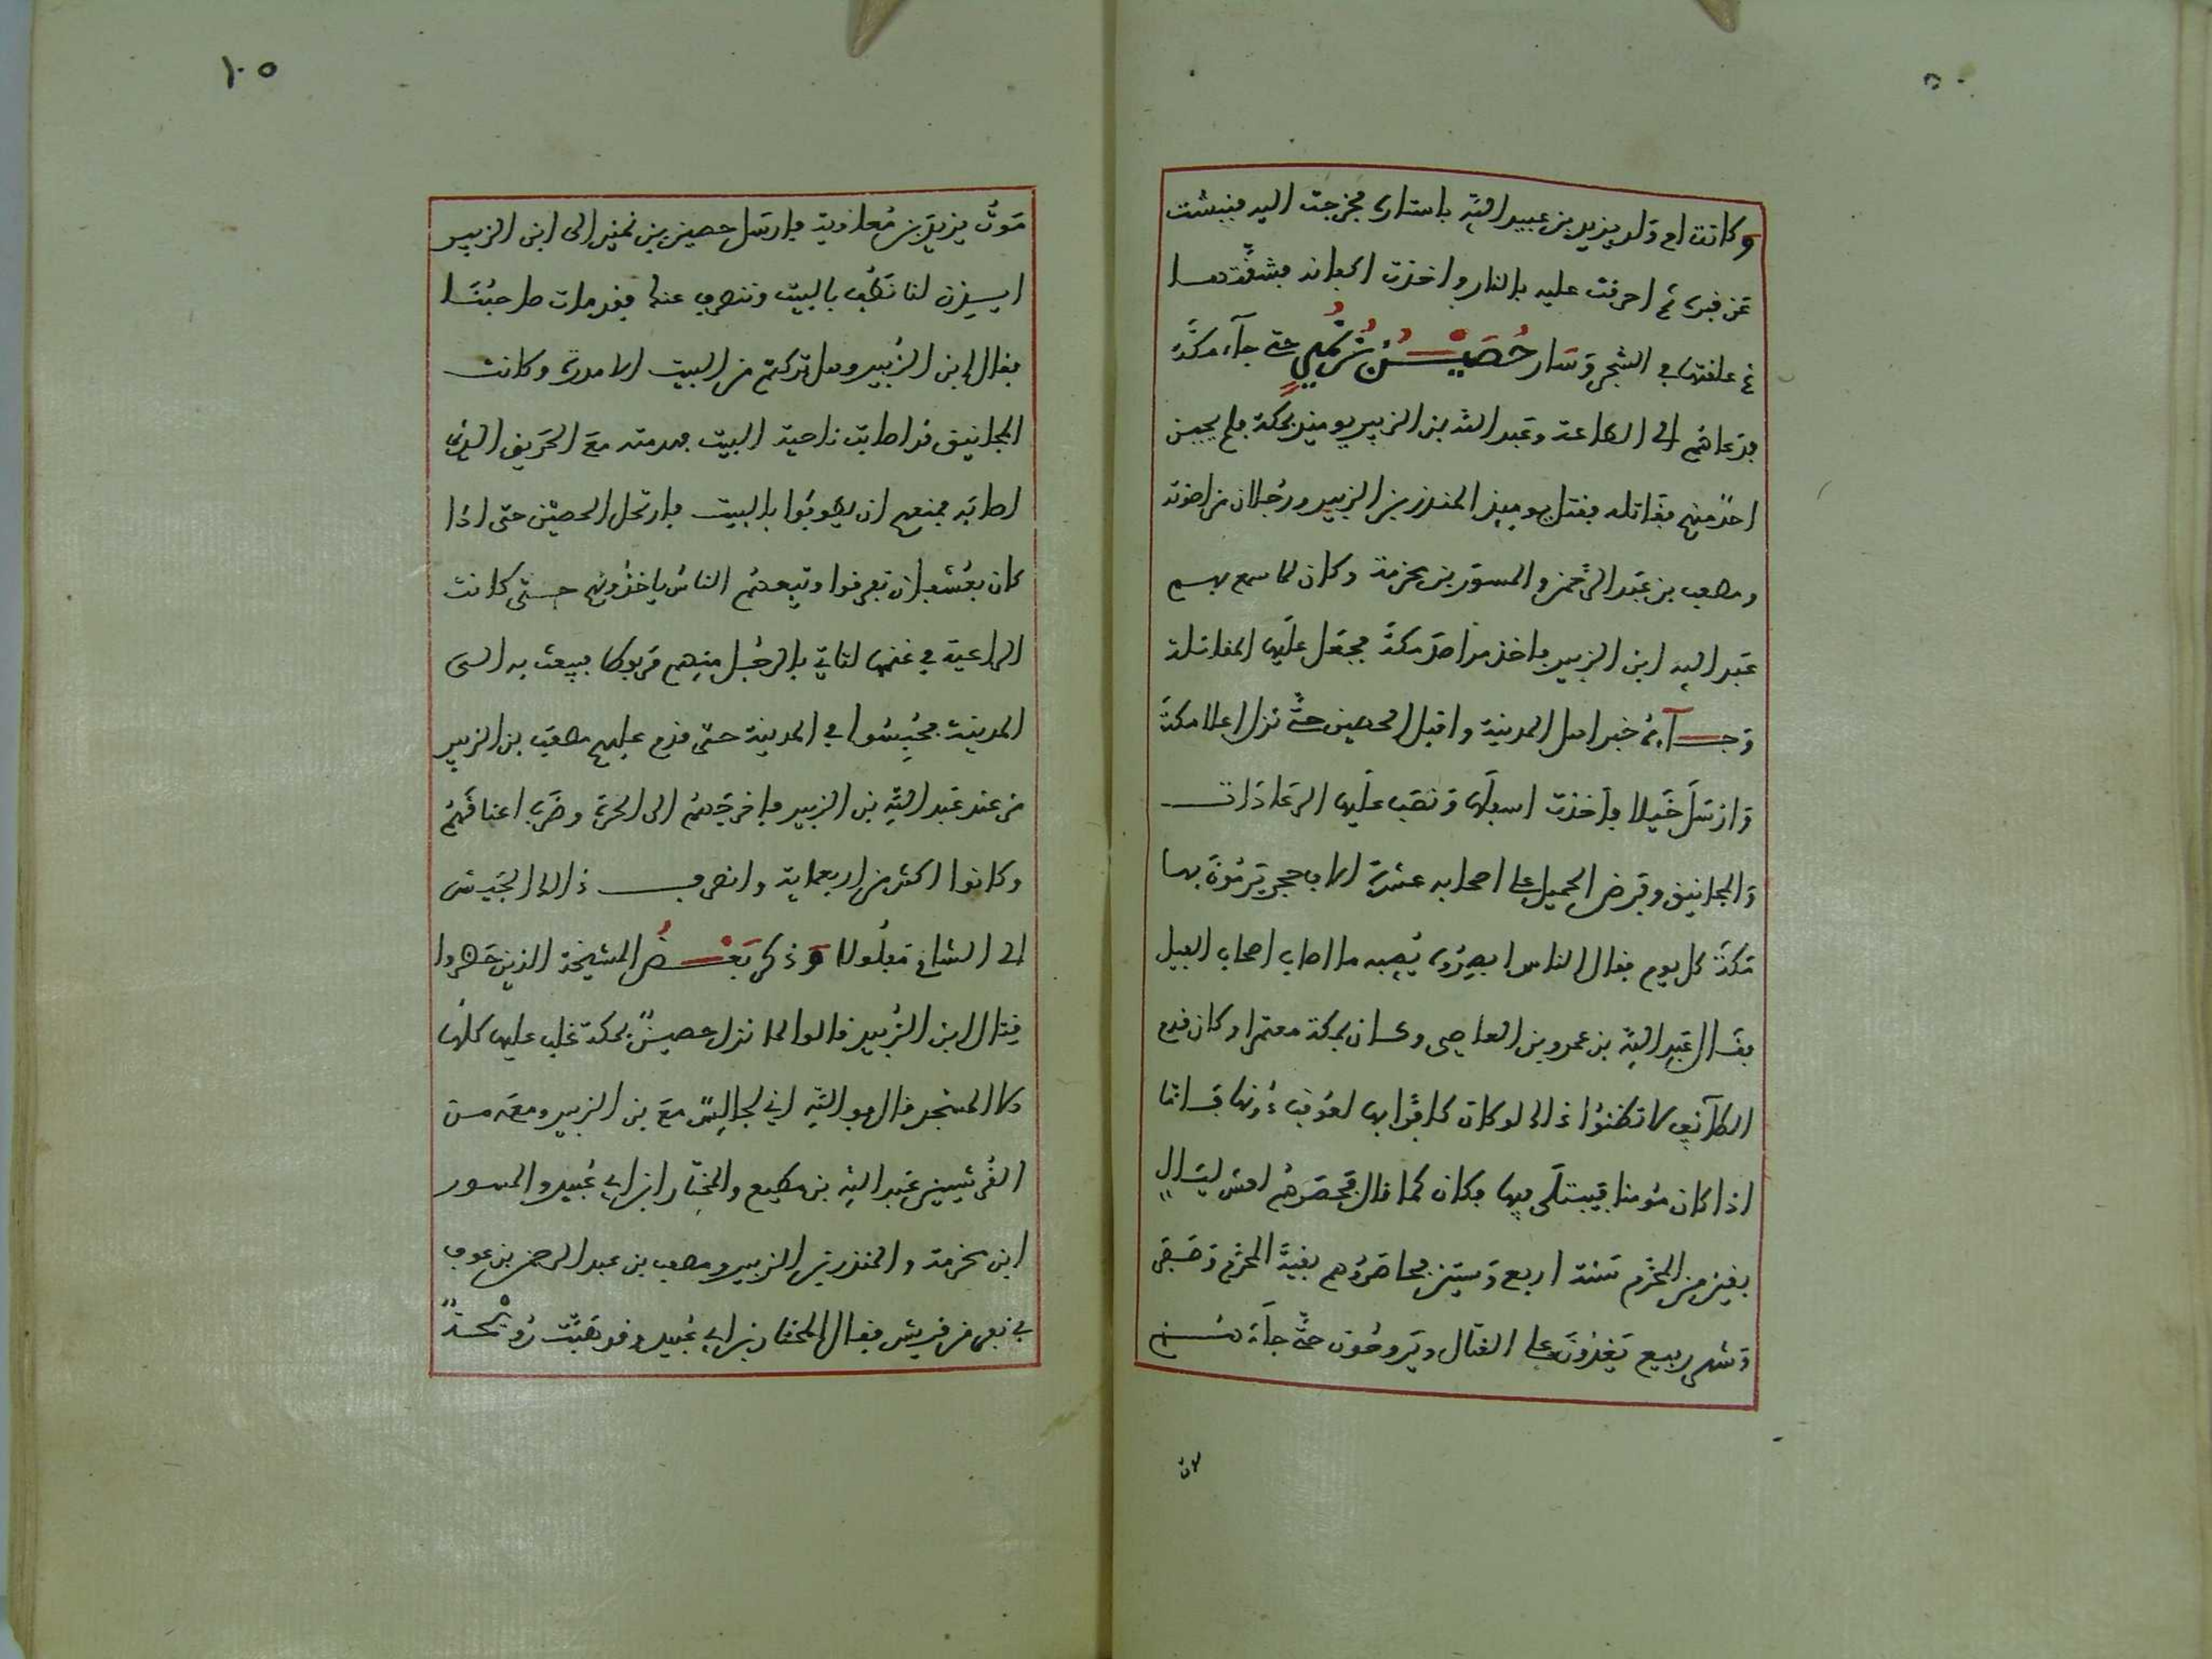 وكانت ام ولد يزيد بن عبيد الله باستاره فخرجت اليه فنبشت
عن قبره ثم احرقت عليه بالنار واخذت اكفانه فشققتها
ثم علقتها في الشجر وسار حصين بن نمير حتى جآء مكة
فدعاهم الى الطاعة وعبد الله بن الزبير يومئذ بمكة فلم يجبه
احد منهم فقاتله فقتل يومئذ المنذر بن الزبير ورجلان من اخوته
ومصعب بن عبد الرحمن والمسور بن مخرمة وكان لما سمع بهم
عبد الله ابن الزبير فاخذ مراصد مكة فجعل عليها المقاتلة
وجآءه خبر اهل المدينة واقبل الحصين حتى نزل اعلا مكة
وارسل خيلا فاخذت اسفلها ونصب عليها العرادات
والمجانيق وفرض الحصين على اصحابه عشرة الاف حجر يرمون بها
مكة كل يوم فقال الناس يصيبه ما اصاب اصحاب الفيل
فقال عبد الله بن عمرو بن العاصي وكان بمكة معتمرا وكان قدم
الطآئف لا تظنوا ذلك لو كان كافرا بها لعوقب دونها فاما
اذا كان مؤمنا فيبتلى فيها فكان كما قال فحصرهم لعشر ليال
بقين من المحرم سنة اربع وستين فحاصروهم بقية المحرم وصفر
وشهر ربيع يغدون على القتال ويروحون حتى جآءهم
١٠٥
موت يزيد بن معاوية فارسل حصين بن نمير الى ابن الزبير
ايذن لنا نطف بالبيت وننصرف عنكم فقد مات صاحبنا
فقال ابن الزبير وهل تركتم من البيت الا مدرة وكانت
المجانيق قد اصابت ناحية البيت فهدمته مع الحريق الذي
اصابه فمنعهم ان يطوفوا بالبيت فارتحل الحصين حتى اذا
كان بعسفان تفرقوا وتبعهم الناس ياخذونهم حتى كانت
الراعية في غنمها لتاتي بالرجل منهم مربوطا فيبعث به الى
المدينة فحبسوا في المدينة حتى قدم عليهم مصعب بن الزبير
من عند عبد الله بن الزبير فاخرجهم الى الحرة وضرب اعناقهم
وكانوا اكثر من اربعماية وانصرف ذلك الجيش
الى الشام مفلولا وذكر بعض المشيخة الذين حضروا
قتال ابن الزبير قالوا لما نزل حصين بمكة غلب عليها كلها
الا المسجد قال فوالله اني لجالس مع بن الزبير ومعه من
القرشيين عبد الله بن مطيع والمختار بن ابي عبيد والمسور
ابن مخرمة والمنذر بن الزبير ومصعب بن عبد الرحمن بن عوف
في نفر من قريش فقال المختار بن ابي عبيد وقد هبت رويحة